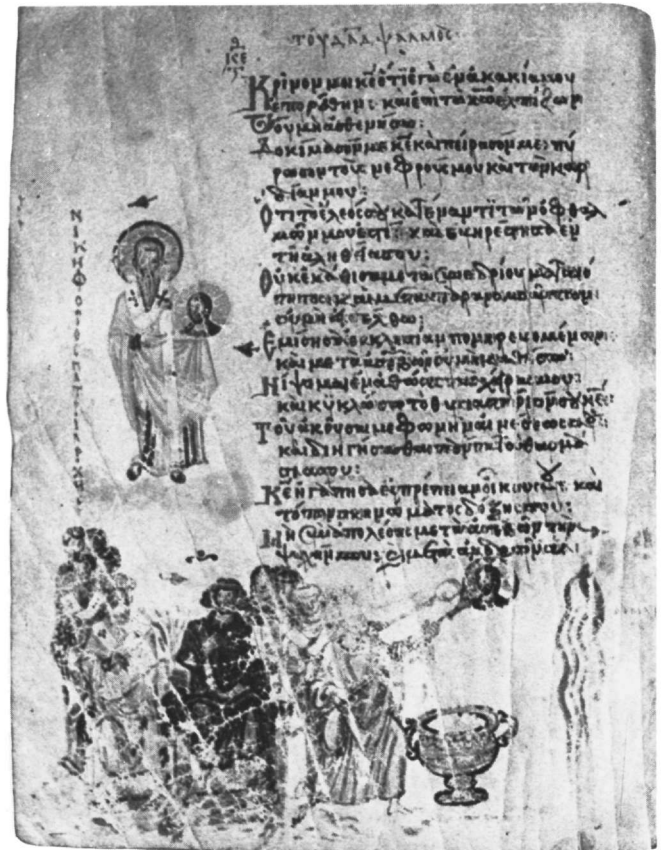 τοῦ δᾱδ ψαλμός
κε
Κρῖνόν μοι κ̅ε ὅτι ἐγὼ ἐν ἀκακία μου
ἐπορεύθην· καὶ ἐπὶ τῷ κ̅ω ἐλπίζων
οὐ μὴ ἀσθενήσω:
Δοκίμασόν με κ̅ε καὶ πείρασόν με· πύ
ρωσον τοὺς νεφρούς μου καὶ τὴν καρ
δίαν μου:
Ὅτι τὸ ἔλεός σου κατέναντι τῶν ὀφθαλ
μῶν μου ἐστί· καὶ εὐηρέστησα ἐν
τῇ ἀληθεία σου:
Οὐκ ἐκάθισα μετὰ συνεδρίου ματαιό
τητος καὶ μετὰ παρανομούντων
οὐ μὴ εἰσέλθω:
Ἐμίσησα ἐκκλησίαν πονηρευομένων·
καὶ μετὰ ἀσεβῶν οὐ μὴ καθίσω:
Νίψομαι ἐν ἀθώοις τὰς χεῖράς μου·
καὶ κυκλώσω τὸ θυσιαστήριόν σου κ̅ε:
Τοῦ ἀκοῦσαί με φωνῆς αἰνέσεώς σου·
καὶ διηγήσασθαι πάντα τὰ θαυμά
σιά σου:
Κ̅ε ἠγάπησα εὐπρέπειαν οἴκου σου· καὶ
τόπον σκηνώματος δόξης σου:
Μὴ συναπολέσῃς μετὰ ἀσεβῶν τὴν
ψυχήν μου· καὶ μετὰ ἀνδρῶν αἱμά
ΝΙΚΗΦΟΡΟΣ ΠΑΤΡΙΑΡΧΗΣ